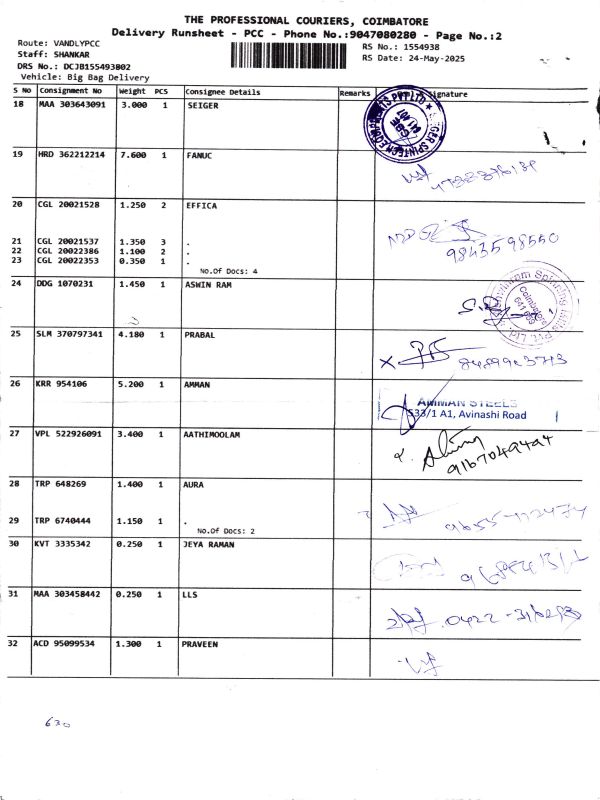 THE PROFESSIONAL COURIERS, COIMBATORE
Delivery Runsheet - PCC - Phone No.:9047080280 - Page No.:2
Route: VANDLYPCC
RS No.: 1554938
Staff: SHANKAR
RS Date: 24-May-2025
DRS No.: DCJB155493802
Vehicle: Big Bag Delivery
S No Consignment No Weight PCS Consignee Details Remarks Signature
18 MAA 303643091 3.000 1 SEIGER
19 HRD 362212214 7.600 1 FANUC
20 CGL 20021528 1.250 2 EFFICA
9843598550
21 CGL 20021537 1.350 3 .
22 CGL 20022386 1.100 2 .
23 CGL 20022353 0.350 1 .
No.Of Docs: 4
24 DDG 1070231 1.450 1 ASWIN RAM
Coimbatore
25 SLM 370797341 4.180 1 PRABAL
X
26 KRR 954106 5.200 1 AMMAN
AMMAN STEELS
533/1 A1, Avinashi Road
27 VPL 522926091 3.400 1 AATHIMOOLAM
9167049494
28 TRP 648269 1.400 1 AURA
29 TRP 6740444 1.150 1 .
No.Of Docs: 2
30 KVT 3335342 0.250 1 JEYA RAMAN
31 MAA 303458442 0.250 1 LLS
32 ACD 95099534 1.300 1 PRAVEEN
630